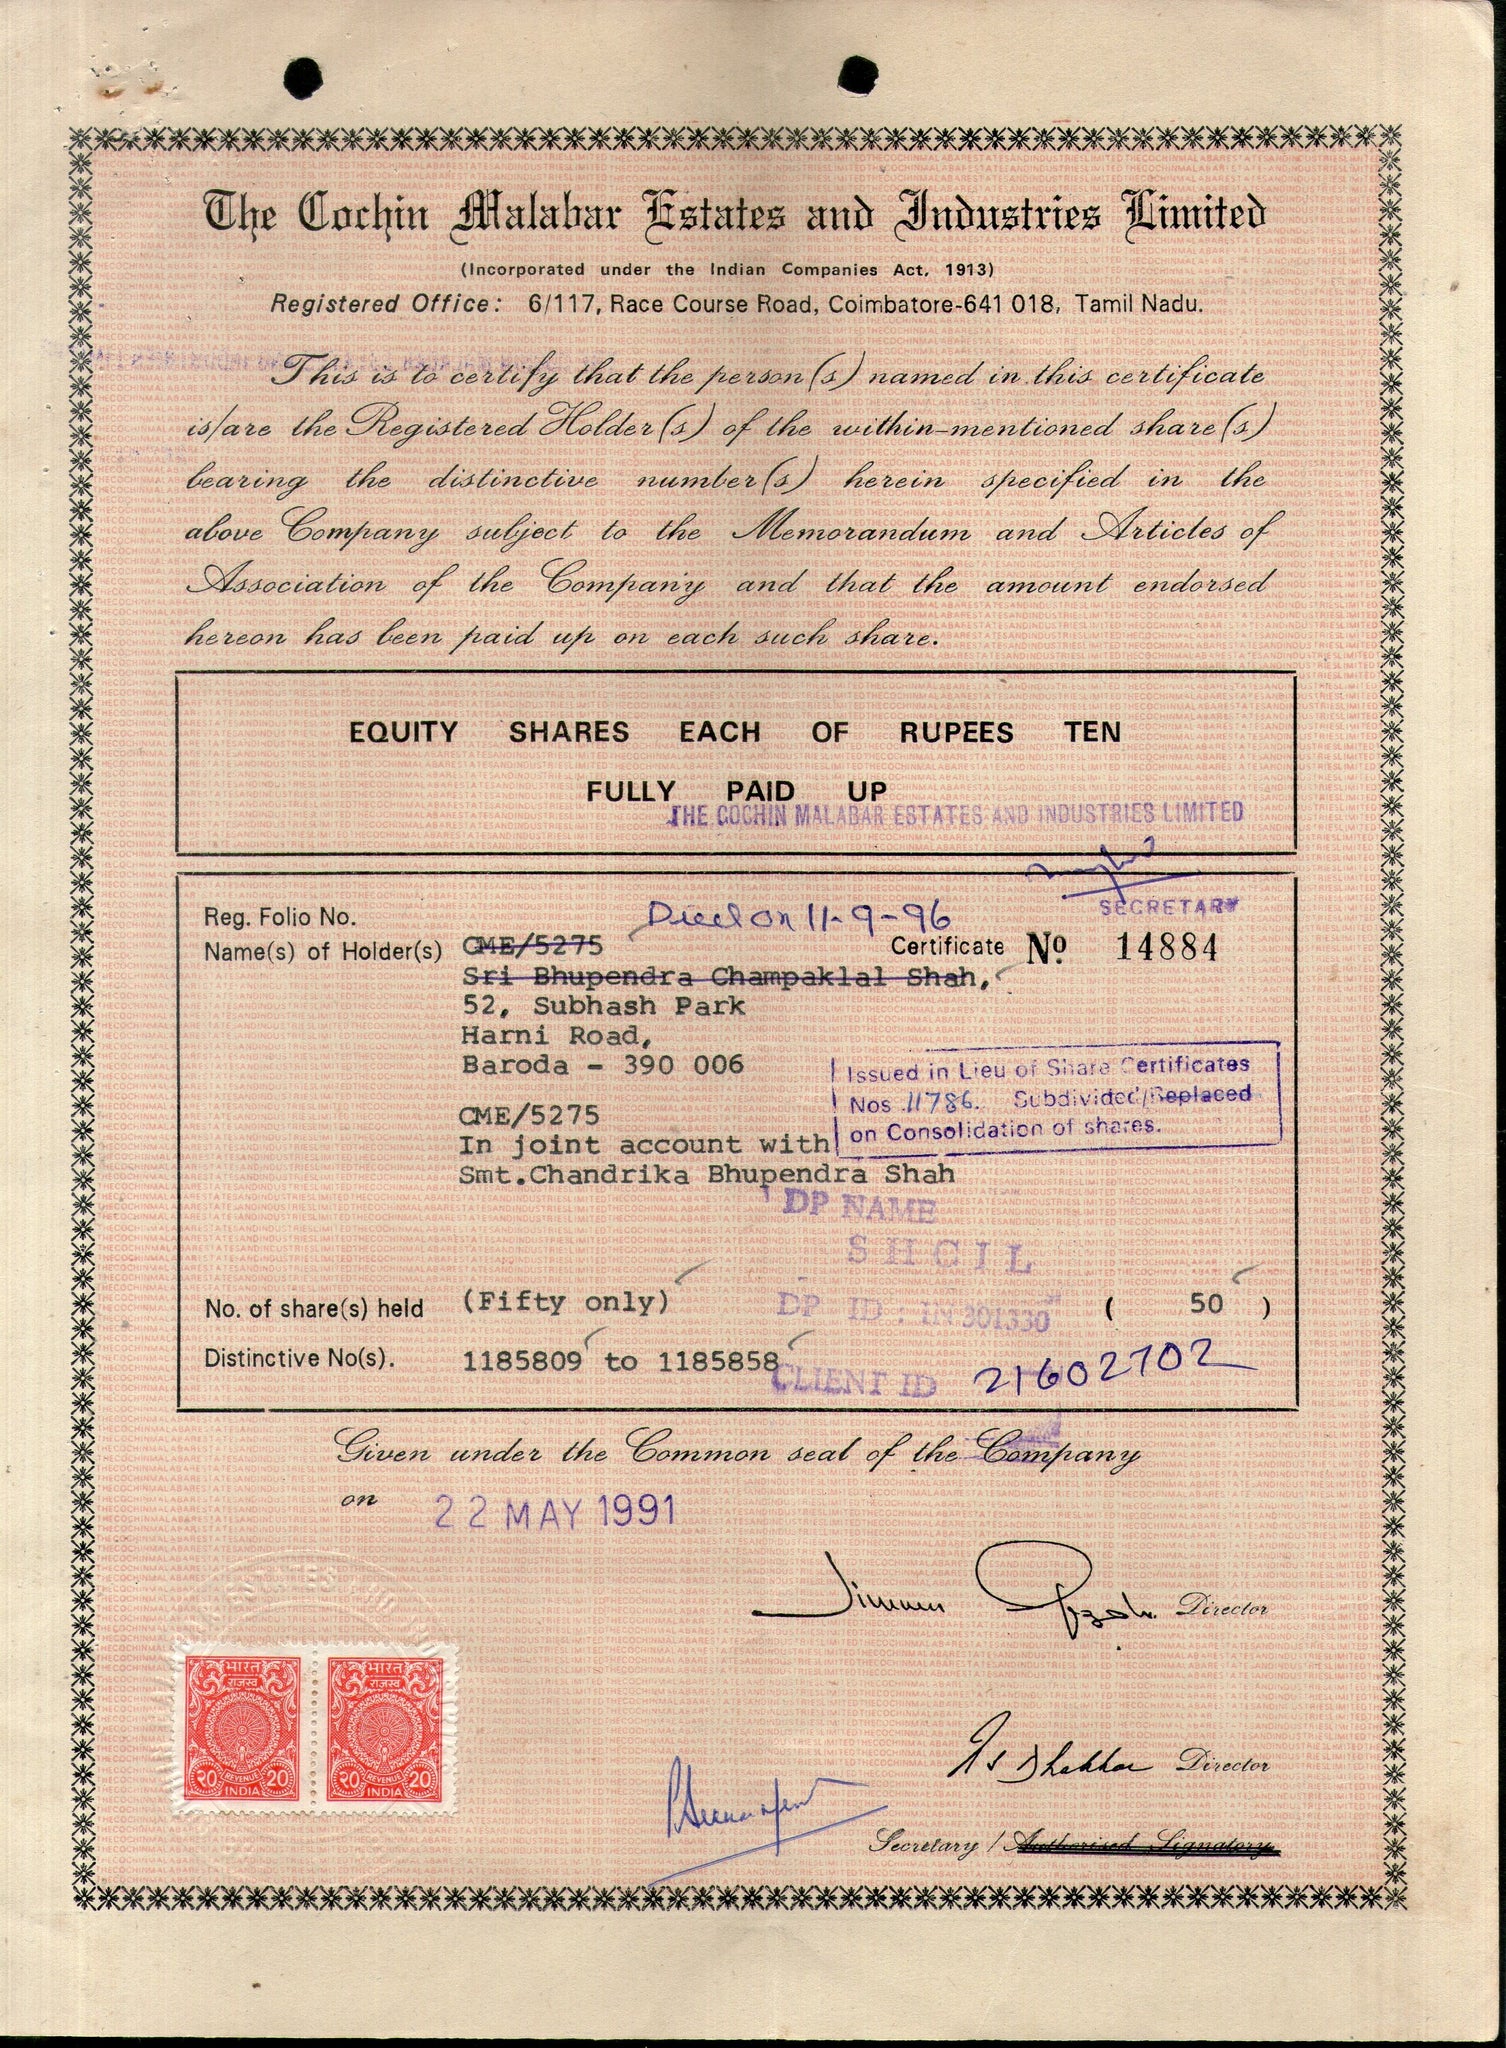 The Cochin Malabar Estates and Industries Limited
(Incorporated under the Indian Companies Act, 1913)
Registered Office: 6/117, Race Course Road, Coimbatore-641 018, Tamil Nadu.
This is to certify that the person(s) named in this certificate
is/are the Registered Holder(s) of the within-mentioned share(s)
bearing the distinctive number(s) herein specified in the
above Company subject to the Memorandum and Articles of
Association of the Company and that the amount endorsed
hereon has been paid up on each such share.
EQUITY SHARES EACH OF RUPEES TEN
FULLY PAID UP
THE COCHIN MALABAR ESTATES AND INDUSTRIES LIMITED
SECRETARY
Reg. Folio No. Died on 11-9-96
Name(s) of Holder(s) CME/5275 Certificate No. 14884
Sri Bhupendra Champaklal Shah,
52, Subhash Park
Harni Road,
Baroda - 390 006
Issued in Lieu of Share Certificates
Nos 11786. Subdivided/Replaced
on Consolidation of shares.
CME/5275
In joint account with
Smt.Chandrika Bhupendra Shah
DP NAME
SHCIL
No. of share(s) held (Fifty only) DP ID : IN 301330 ( 50 )
Distinctive No(s). 1185809 to 1185858
CLIENT ID 21602702
Given under the Common seal of the Company
on 22 MAY 1991
Director
Director
Secretary / Authorised Signatory
भारत भारत
राजस्व राजस्व
२० REVENUE 20 २० REVENUE 20
INDIA INDIA